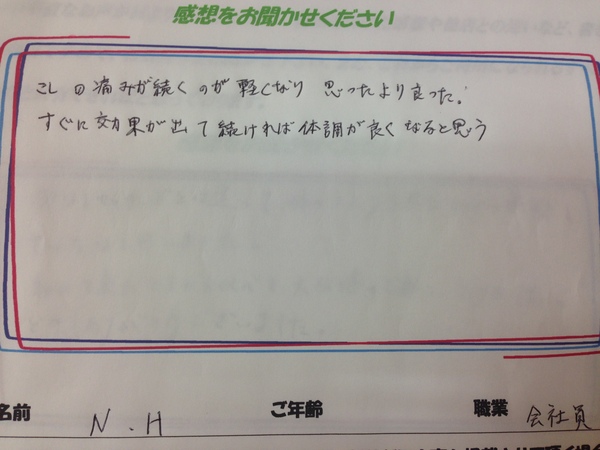 感想をお聞かせください
こしの痛みが続くのが軽くなり 思ったより良った！
すぐに効果が出て続ければ体調が良くなると思う
名前 N.H ご年齢 職業 会社員